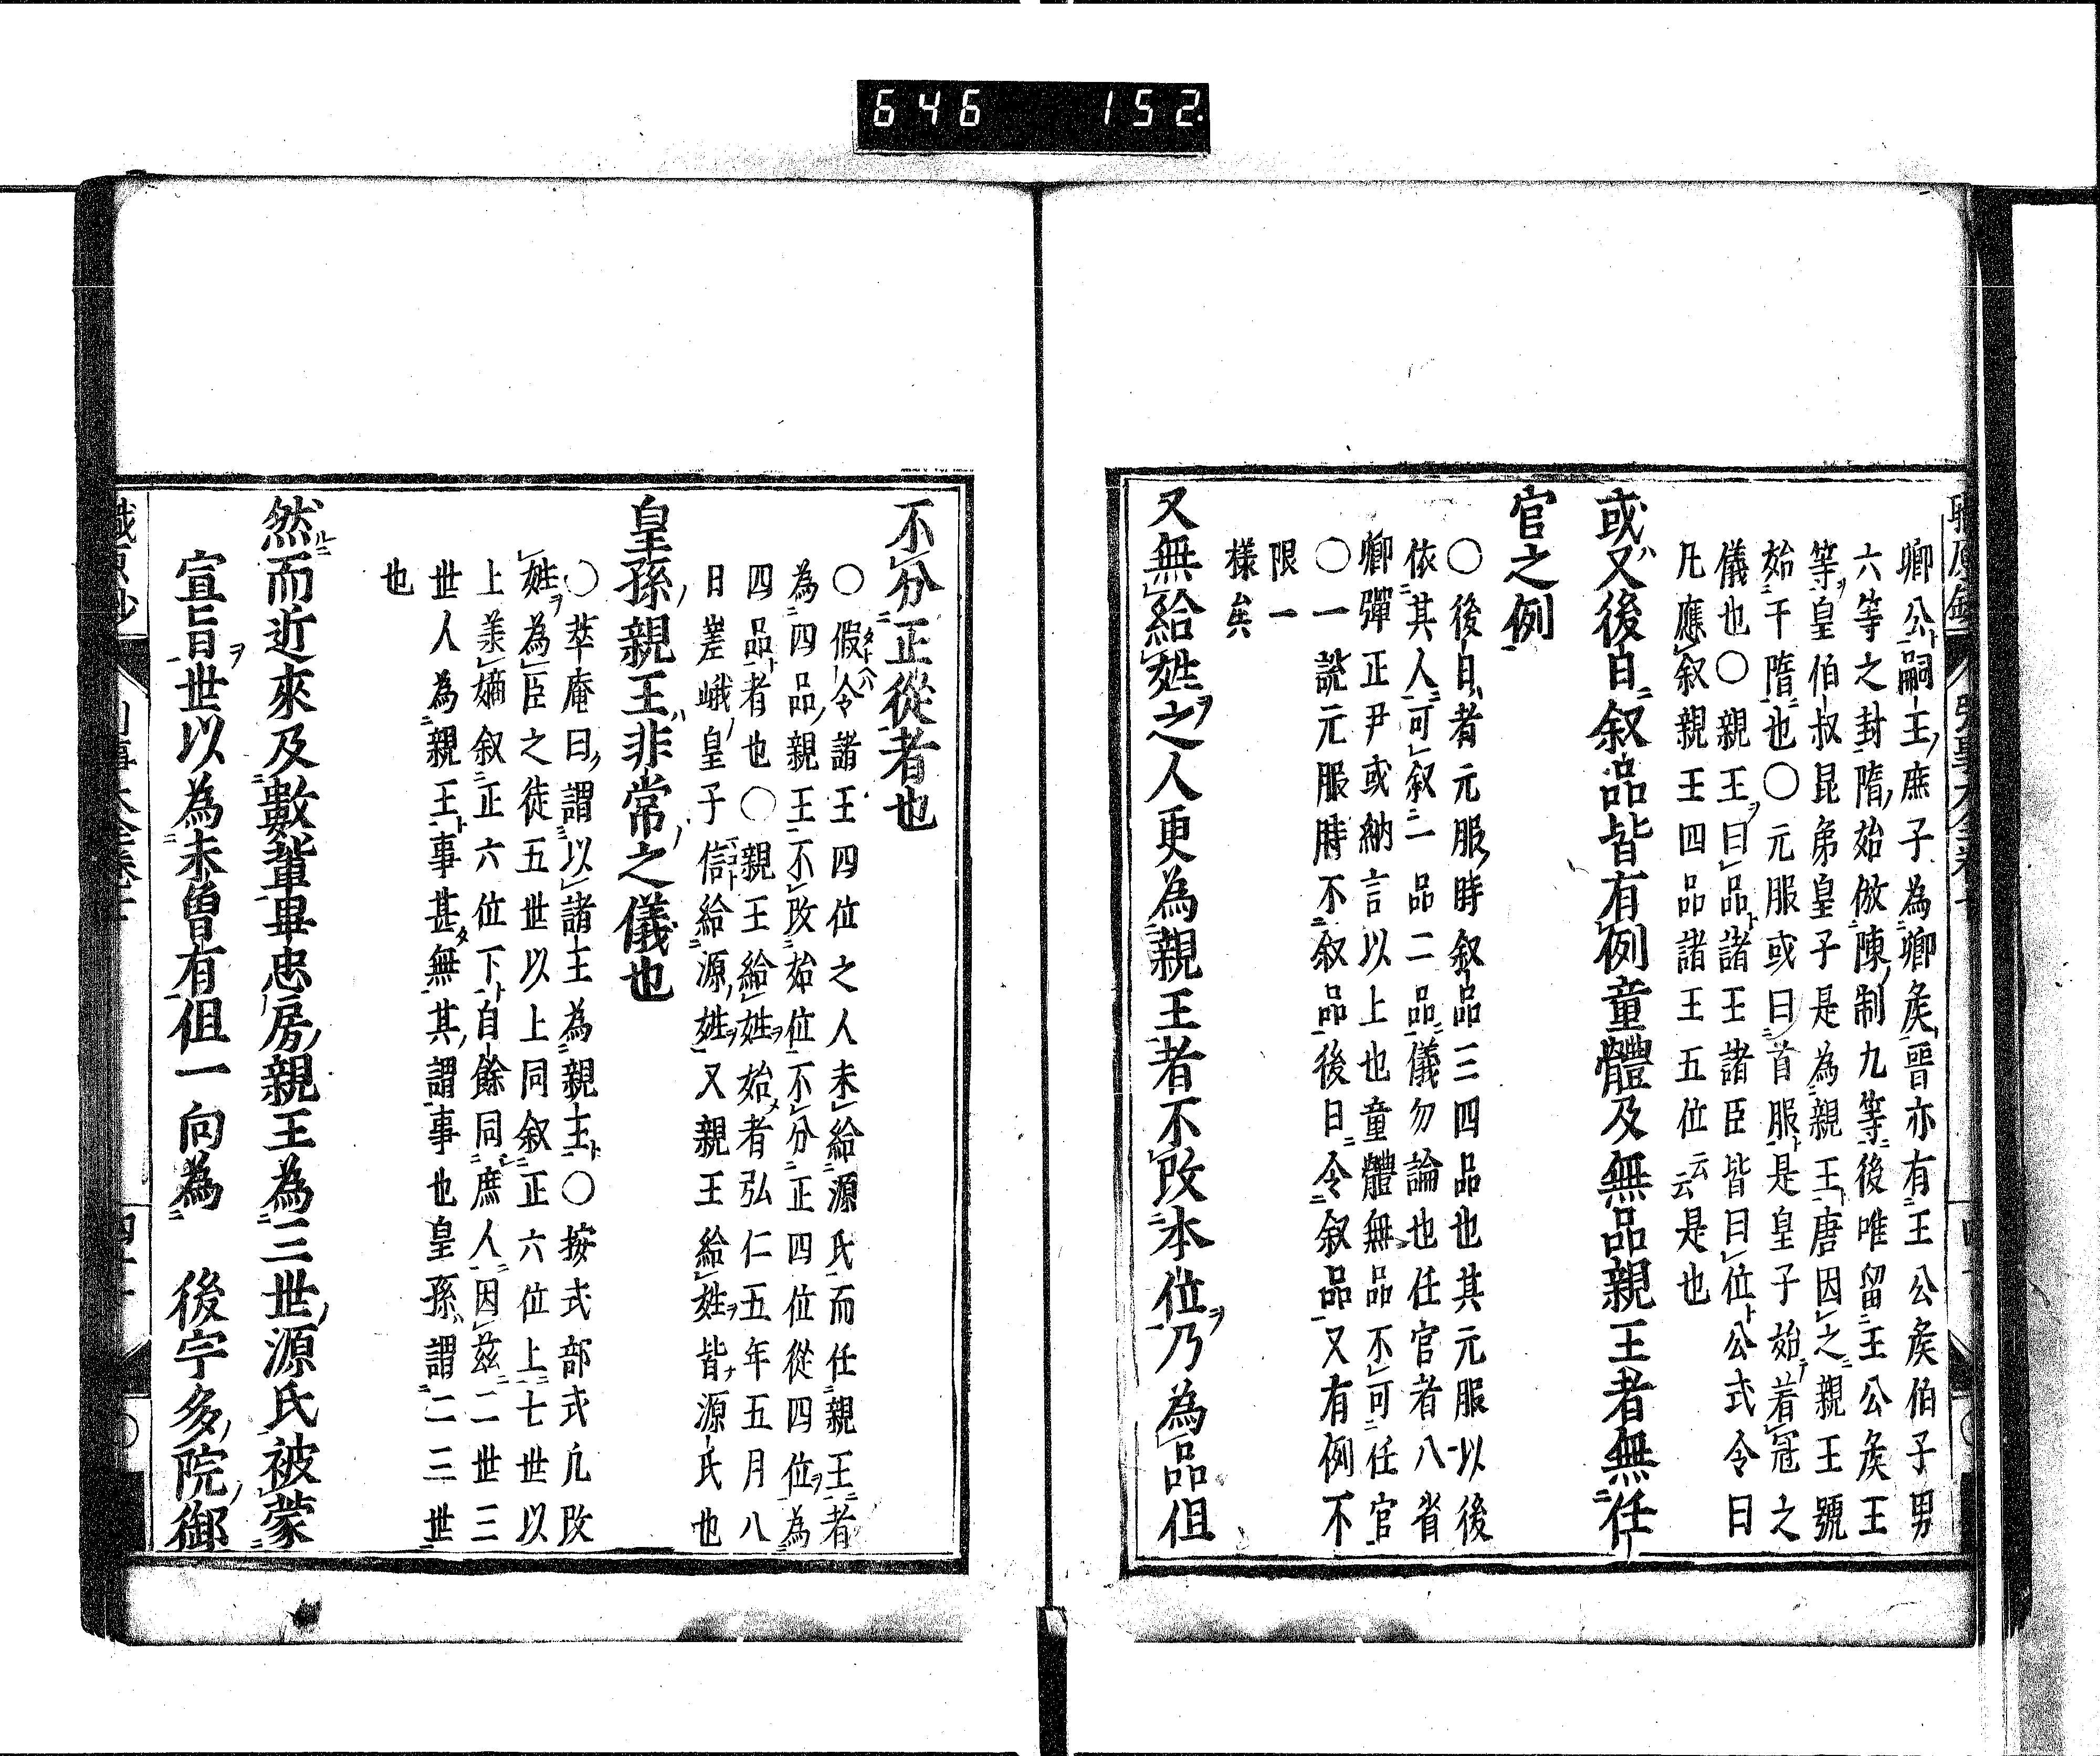 646 152
卿公嗣王庶子為卿矦晋亦有王公矦伯子男
六等之封隋始倣陳制九等後唯留王公矦王
等皇伯叔昆弟皇子是為親王唐因之親王號
始于隋也○元服或曰首服是皇子始着冠之
儀也○親王曰品諸王諸臣皆曰位公式令曰
凡應叙親王四品諸王五位云云是也
或又後日叙品皆有例童體及無品親王者無任
官之例
○後日者元服時叙品三四品也其元服以後
依其人可叙一品二品儀勿論也任官者八省
卿彈正尹或納言以上也童體無品不可任官
○一說元服時不叙品後日令叙品又有例不
限一
様矣
又無給姓之人更為親王者不改本位乃為品但
不分正從者也
○假令諸王四位之人未給源氏而任親王者
為四品親王不改始位不分正四位從四位為
四品者也○親王給姓始者弘仁五年五月八
日嵯峨皇子信給源姓又親王給姓皆源氏也
皇孫親王非常之儀也
○萃庵曰謂以諸王為親王○按式部式凢改
姓為臣之徒五世以上同叙正六位上七世以
上羕嫡叙正六位下自餘同庶人因茲二世三
世人為親王事甚無其謂事也皇孫謂二三世
也
然而近來及數輩畢忠房親王為三世源氏被蒙
宣旨世以為未曾有但一向為 後宇多院御